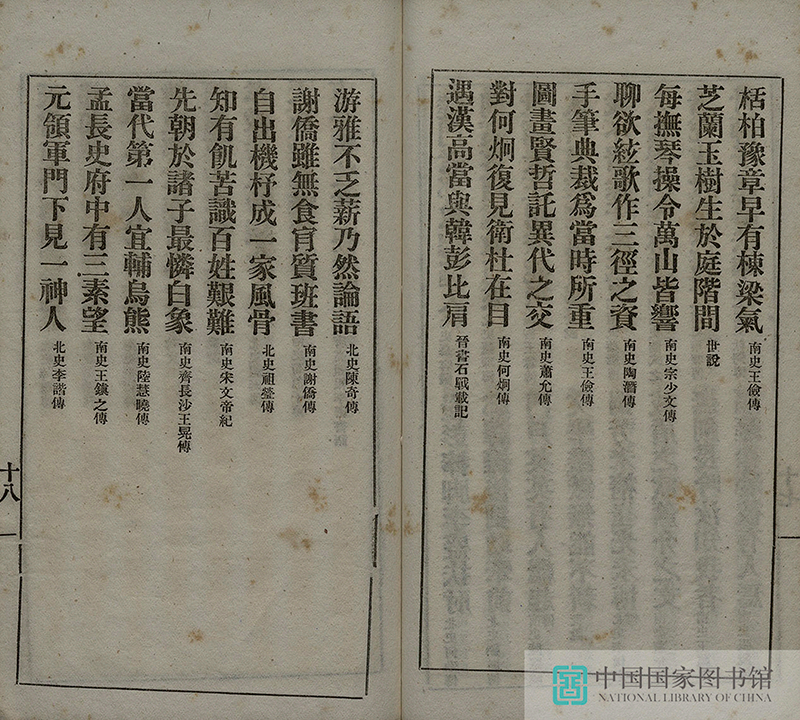 栝柏豫章早有棟梁氣 南史王儉傳
芝蘭玉樹生於庭階間 世說
每撫琴操令萬山皆響 南史宗少文傳
聊欲絃歌作三徑之資 南史陶潛傳
手筆典裁爲當時所重 南史王儉傳
圖畫賢哲託異代之交 南史蕭允傳
對何炯復見衛杜在目 南史何炯傳
遇漢高當與韓彭比肩 晉書石勒載記
游雅不乏薪乃然論語 北史陳奇傳
謝僑雖無食肎質班書 南史謝僑傳
自出機杼成一家風骨 北史祖瑩傳
知有飢苦識百姓艱難 南史宋文帝紀
先朝於諸子最憐白象 南史齊長沙王晃傳
當代第一人宜輔烏熊 南史陸慧曉傳
孟長史府中有三素望 南史王鎮之傳
元領軍門下見一神人 北史李諧傳
十八
中国国家图书馆
NATIONAL LIBRARY OF CHINA